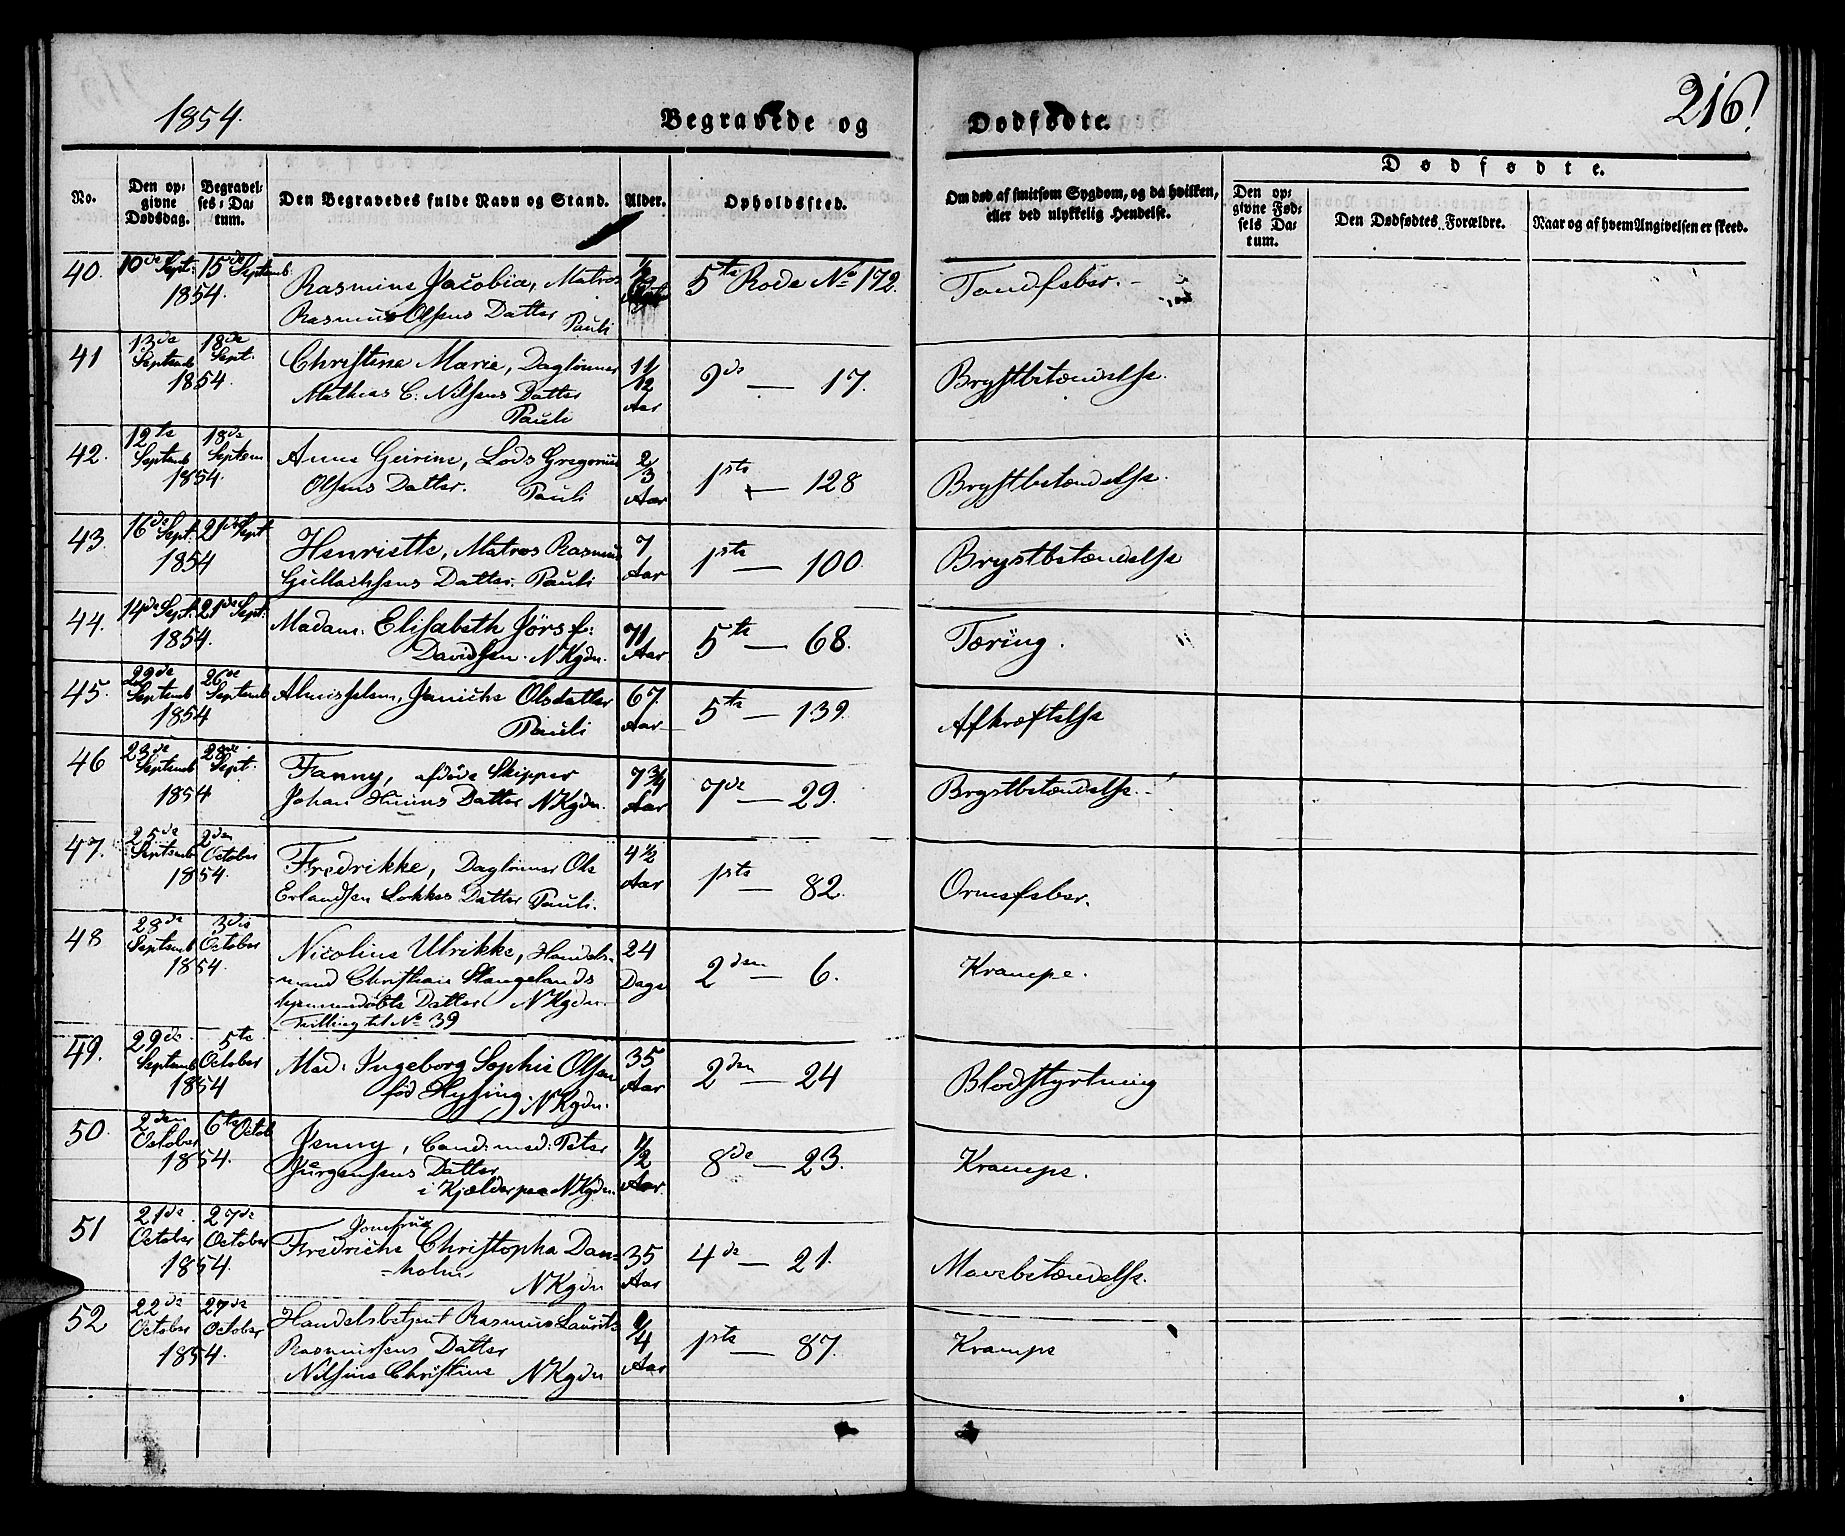 1854.
Begravede og
Dødfødte.
216!
No.
Den op-
givne
Dødsdag.
Begravel-
ses-Da-
tum.
Den Begravedes fulde Navn og Stand.
Alder.
Opholdssted.
Om død af smitsom Sygdom, og da hvilken,
eller ved ulykkelig Hendelse.
Dødfødte.
Den op-
givne Fød-
sels Da-
tum.
Den Dødfødtes Forældre.
Naar og af hvem Angivelsen er skeed.
40. 10de Sept: 1854. 15de Septemb.
Rasmine Jacobia, Matros
Rasmus Olsens Datter Pauli
1/2
5te Rode No 172.
Tandfeber.
41 13de Septemb 1854. 18de Sept.
Christine Marie, Daglønner
Mathias C. Nilsens Datter
Pauli
11/12 Aar
9de — 17.
Brystbetændelse.
42. 12te Septemb 1854. 18de Septem
Anne Geirine, Lods Gregorius
Olsens Datter. Pauli
2/3 Aar
1ste — 128
Brystbetændelse.
43. 16de Sept. 1854 21de Sept
Henriette, Matros Rasmus
Gullachsens Datter. Pauli
7 Aar
1ste — 100.
Brystbetændelse
44. 14de Sept. 1854. 21de Sept:
Madam: Elisabeth Jörs f:
Davidsen. NKgdn.
71 Aar
5te — 68.
Tæring.
45. 22de Septemb 1854 26de Septemb
Almisselem, Janiche Olsdatter
Pauli
67. Aar
5te — 139.
Afkræftelse
46 23de Septemb 1854 28de Sept.
Fanny, afdøde Skipper
Johan Datter NKgdn.
7 3/4 Aar
7de — 29.
Brystbetændelse.
47. 25de Septemb 1854. 2den October
Fredrikke, Daglønner Ole
Erlandsen Løkkes Datter Pauli.
4 1/2 Aar
1ste — 82.
Ormefeber.
48 28de Septemb 1854. 3die October
Nicoline Ulrikke, Handels-
mand Christian Stangelands
hjemmedøbte Datter NKgdn.
Tvilling til No 39
24 Dage
2den — 6.
Krampe.
49. 29de Septemb 1854 5te October
Mad: Ingeborg Sophie Olsen
fød Hysing. NKgdn.
35 Aar
2den — 24
Blodstyrtning
50. 2den October 1854. 6te Octob
Jenny, Cand: med: Peter
Jürgensens Datter
i Kjælder paa NKgdn.
1/2 Aar.
8de — 23.
Krampe.
51 21de October 1854. 27de October
Jomfrue
Fredriche Christopha Dan-
=holm,
NKgdn
35 Aar
4de — 21.
Mavebetændelse.
52 22de October 1854. 27de October
Handelsbetjent Rasmus Laurits
Rasmussens Datter
Nilsine Christine NKgdn
1/4 Aar
1ste — 87.
Krampe